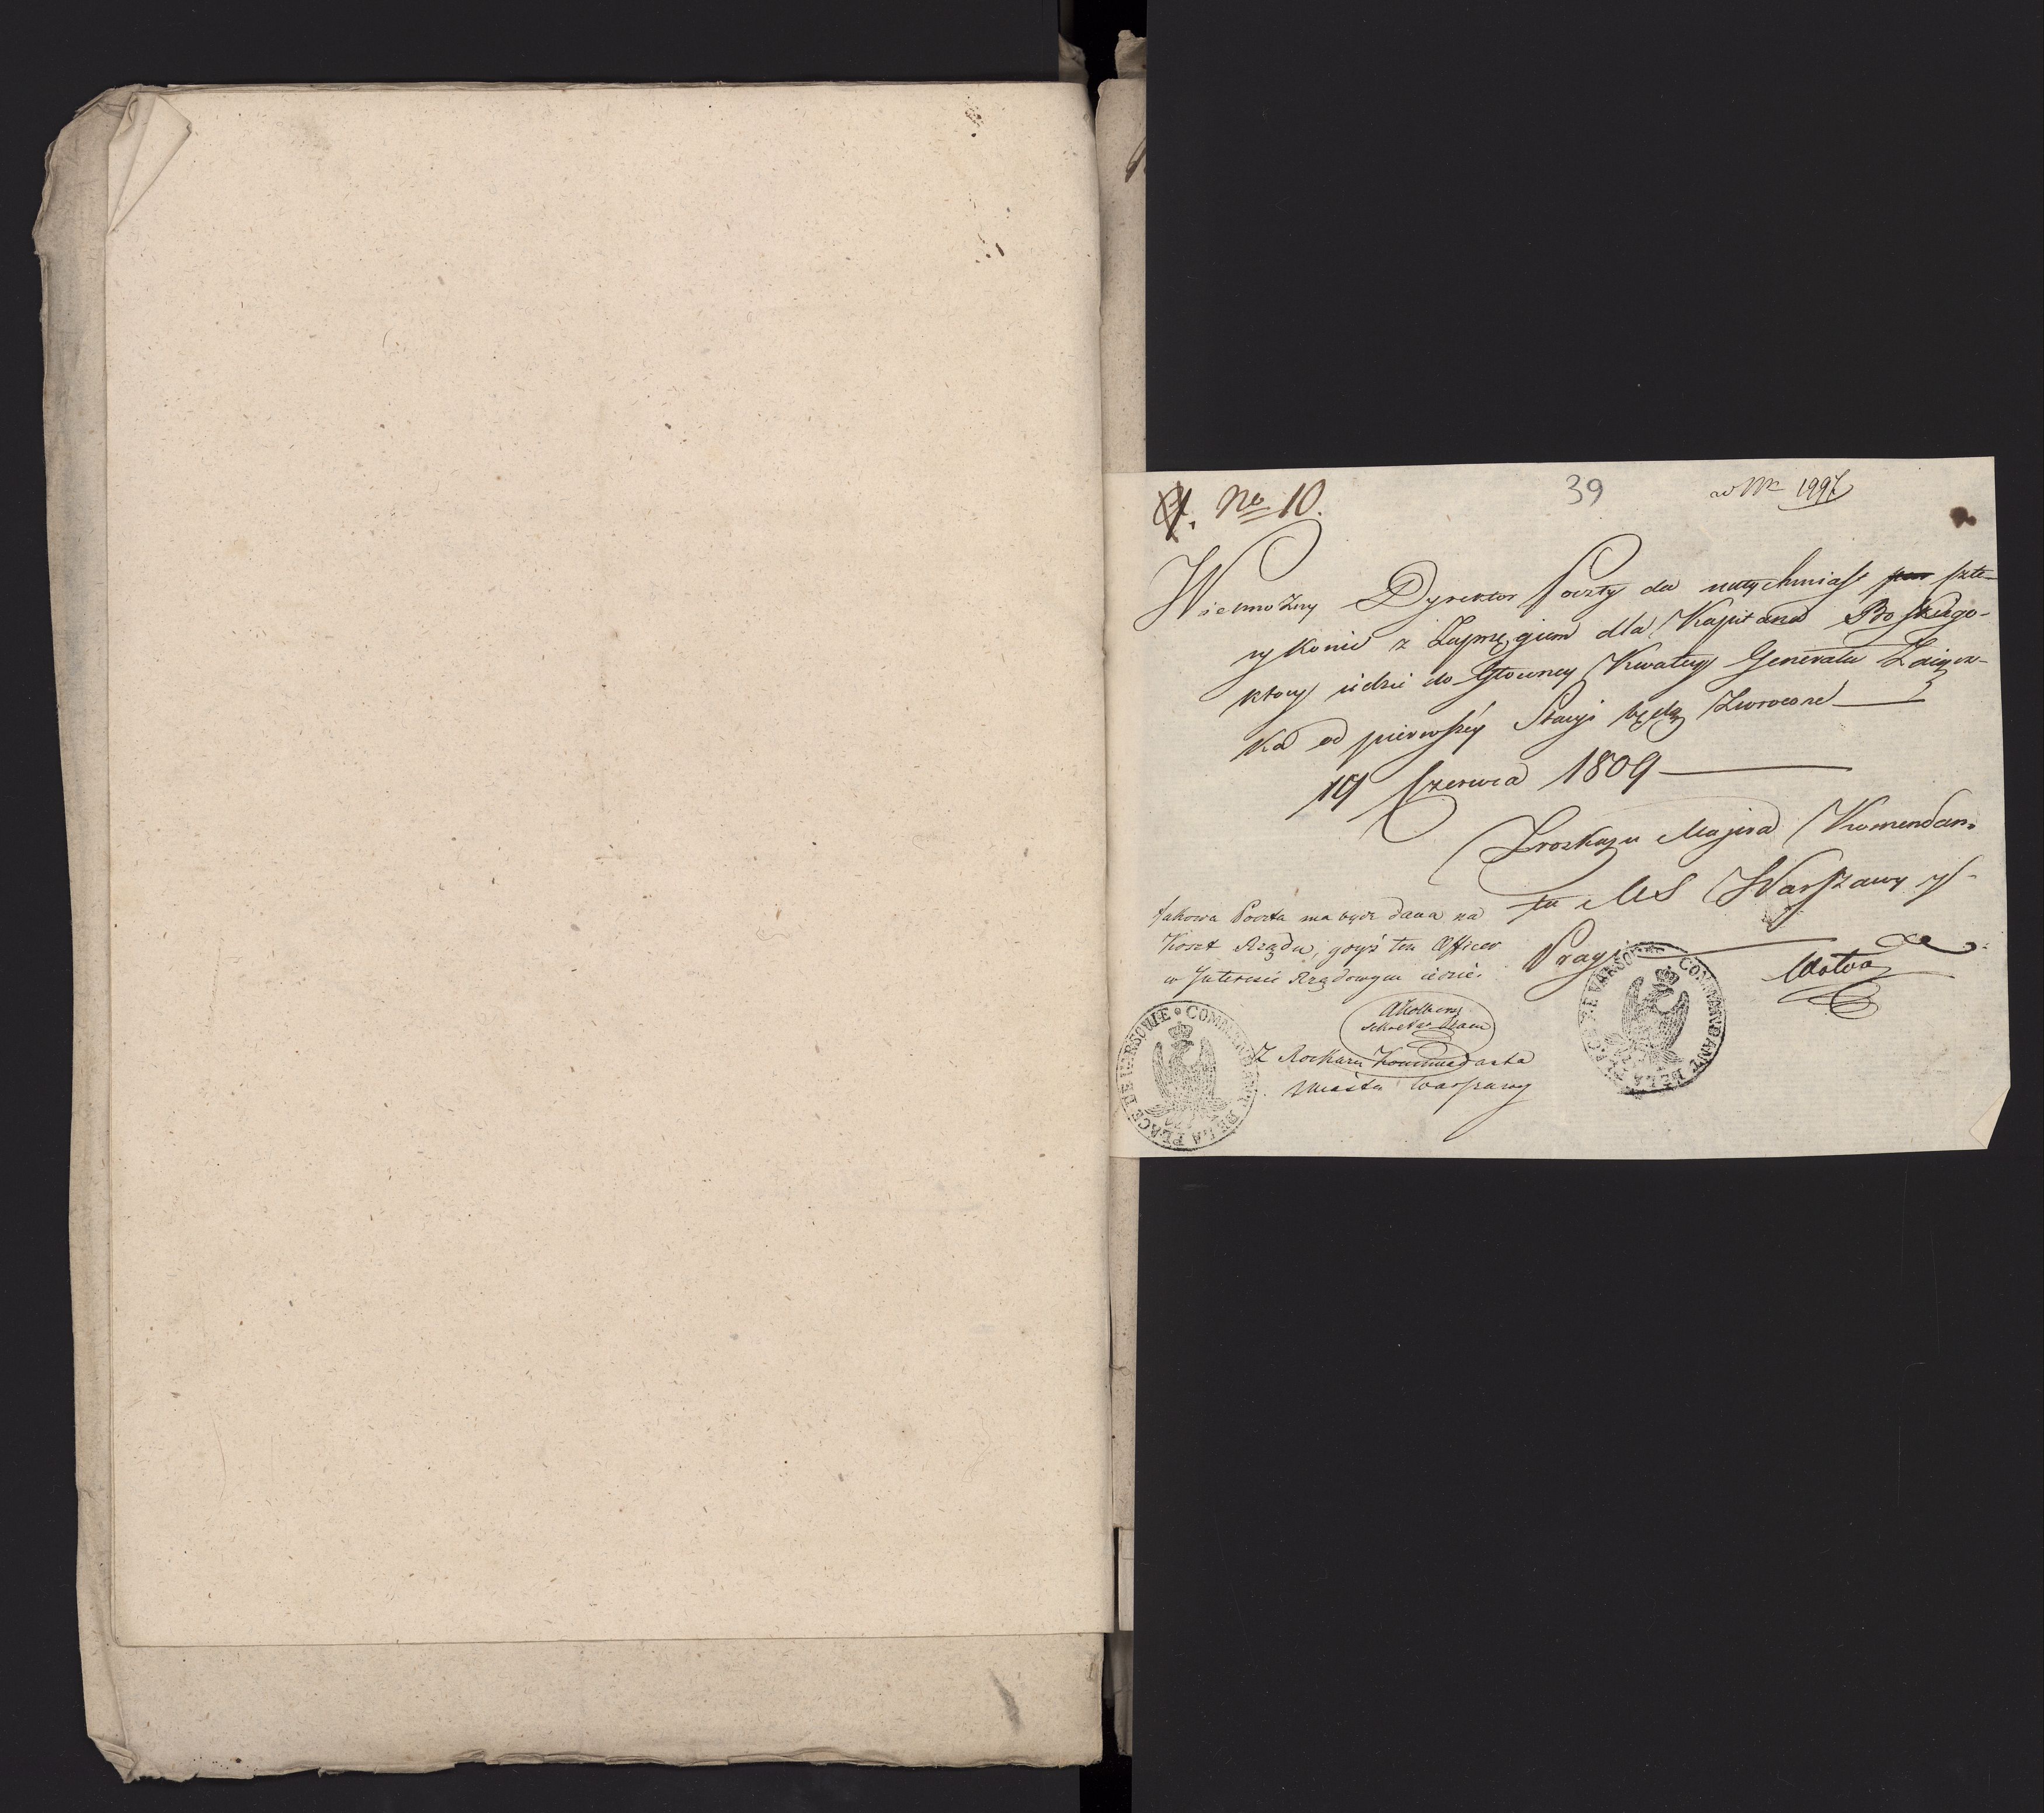 No 10.
39
ad Nr 1997
Wielmożny Dyrektor Poczty da natychmiast szte-
ry konie z Zaprzęgiem dla Kapitana Boskiego-
ktory iedzie do Głowney Kwatery Generała Zaiącz-
ka od pierwszey Stacyi będą Zwrocone
19 Czerwca 1809
Z roskazu Majora Komendan-
ta MS Warszawy y
Pragi
takowa Poczta ma bydz dana na
Koszt Rządu, gdyż ten Officer
w Interesie Rządowym iedzie.
Z Roskazu Kommendanta
Miasta Warszawy
COMMANDANT DE LA PLACE DE VARSOVIE
COMMANDANT DE LA PLACE DE VARSOVIE